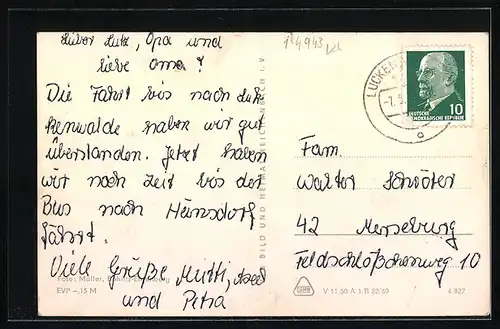 Lieber Lutz, Opa und
liebe Oma!
Die Fahrt bis nach Luk-
kenwalde haben wir gut
überstanden. Jetzt haben
wir noch Zeit bis der
Bus nach Hennsdorf
fährt.
Viele Grüße Mutti,
und Petra
Foto: Müller,
EVP –,15 M
BILD UND HEIMAT REICHENBACH I. V.
LUCKEN
10
DEUTSCHE
DEMOKRATISCHE REPUBLIK
Fam.
Walter Schröter
42 Merseburg
Feldschlößchenweg 10
V 11 50 A 1/B 82/69
4/827